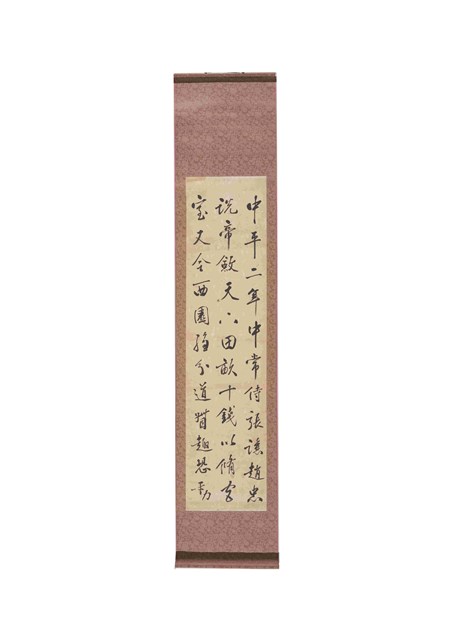 中平二年中常侍張讓趙忠
說帝斂天下田畝十錢以脩宮
室又令西園騶分道督趣恐動